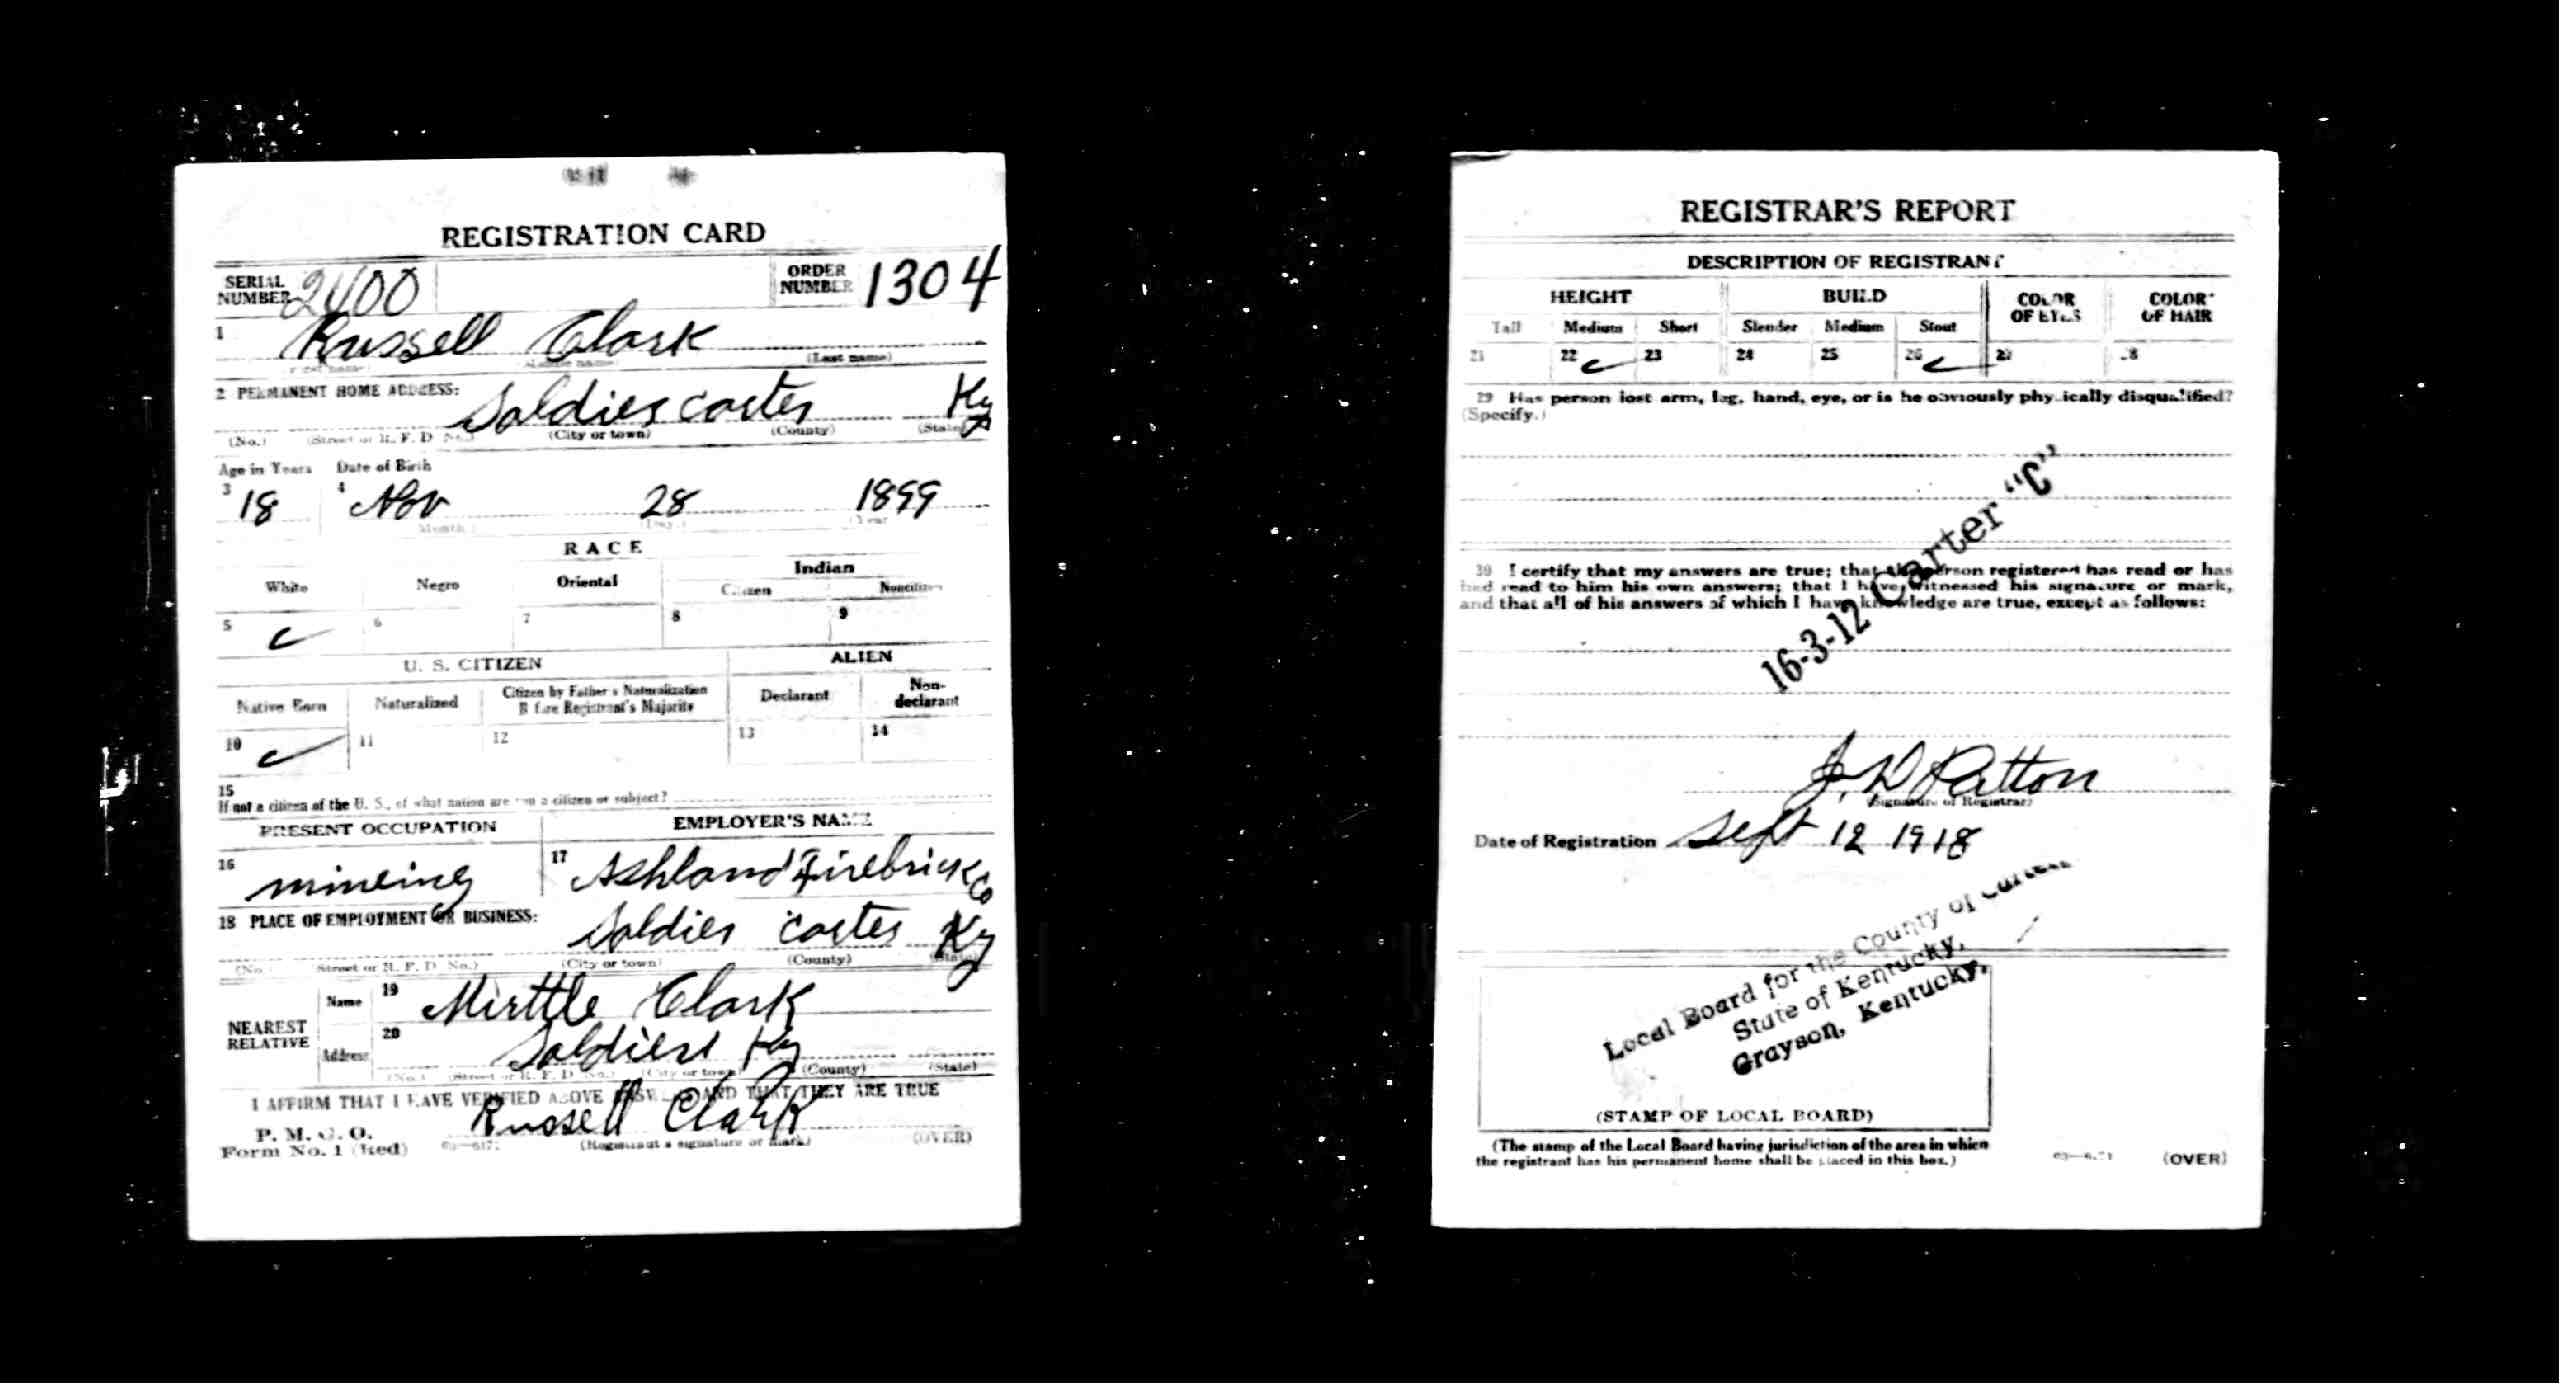 REGISTRATION CARD
SERIAL NUMBER 2400 ORDER NUMBER 1304
1 Russell Clark
(Last name)
2 PERMANENT HOME ADDRESS: Soldier carter Ky
(No.) (Street or R. F. D. No.) (City or town) (County) (State)
Age in Years Date of Birth
3 18 4 Nov 28 1899
(Month.) (Day.) (Year
RACE
White Negro Oriental Indian
Citizen Noncitizen
5 6 7 8 9
U. S. CITIZEN ALIEN
Native Born Naturalized Citizen by Father's Naturalization Before Registrant's Majority Declarant Non-declarant
10 11 12 13 14
15
If not a citizen of the U. S., of what nation are you a citizen or subject?
PRESENT OCCUPATION EMPLOYER'S NAME
16 mineing 17 Ashland Firebrick Co
18 PLACE OF EMPLOYMENT OR BUSINESS:
Soldier carter Ky
(No.) Street or R. F. D. No.) (City or town) (County) (State)
NEAREST RELATIVE
Name 19 Mirttle Clark
Address 20 Soldier Ky
(No.) (Street or R. F. D. No.) (City or town) (County) (State)
I AFFIRM THAT I HAVE VERIFIED ABOVE ANSWERS AND THAT THEY ARE TRUE
P. M. G. O.
Form No. 1 (Red) Russell Clark
(Registrant's signature or mark) (OVER)
REGISTRAR'S REPORT
DESCRIPTION OF REGISTRANT
HEIGHT BUILD COLOR OF EYES COLOR OF HAIR
Tall Medium Short Slender Medium Stout
21 22 23 24 25 26 27 28
29 Has person lost arm, leg, hand, eye, or is he obviously physically disqualified?
(Specify.)
30 I certify that my answers are true; that the person registered has read or has
had read to him his own answers; that I have witnessed his signature or mark,
and that all of his answers of which I have knowledge are true, except as follows:
16-3-12 Carter "C"
J. D. Patton
(Signature of Registrar)
Date of Registration Sept 12 1918
Local Board for the County of Carter
State of Kentucky,
Grayson, Kentucky,
(STAMP OF LOCAL BOARD)
(The stamp of the Local Board having jurisdiction of the area in which
the registrant has his permanent home shall be placed in this box.)
(OVER)